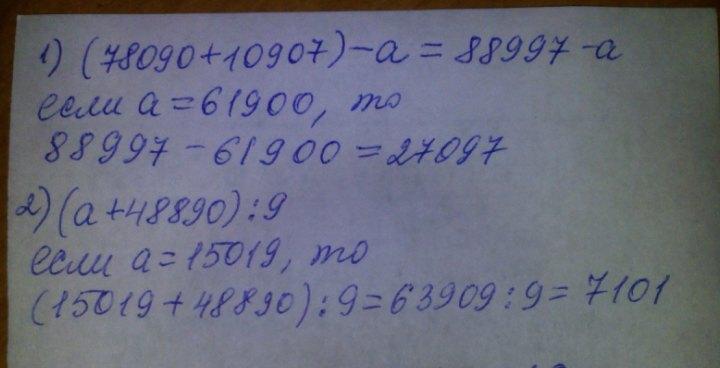 1) (78090+10907)-a=88997-a
если a=61900, то
88997-61900=27097
2) (a+48890):9
если a=15019, то
(15019+48890):9=63909:9=7101